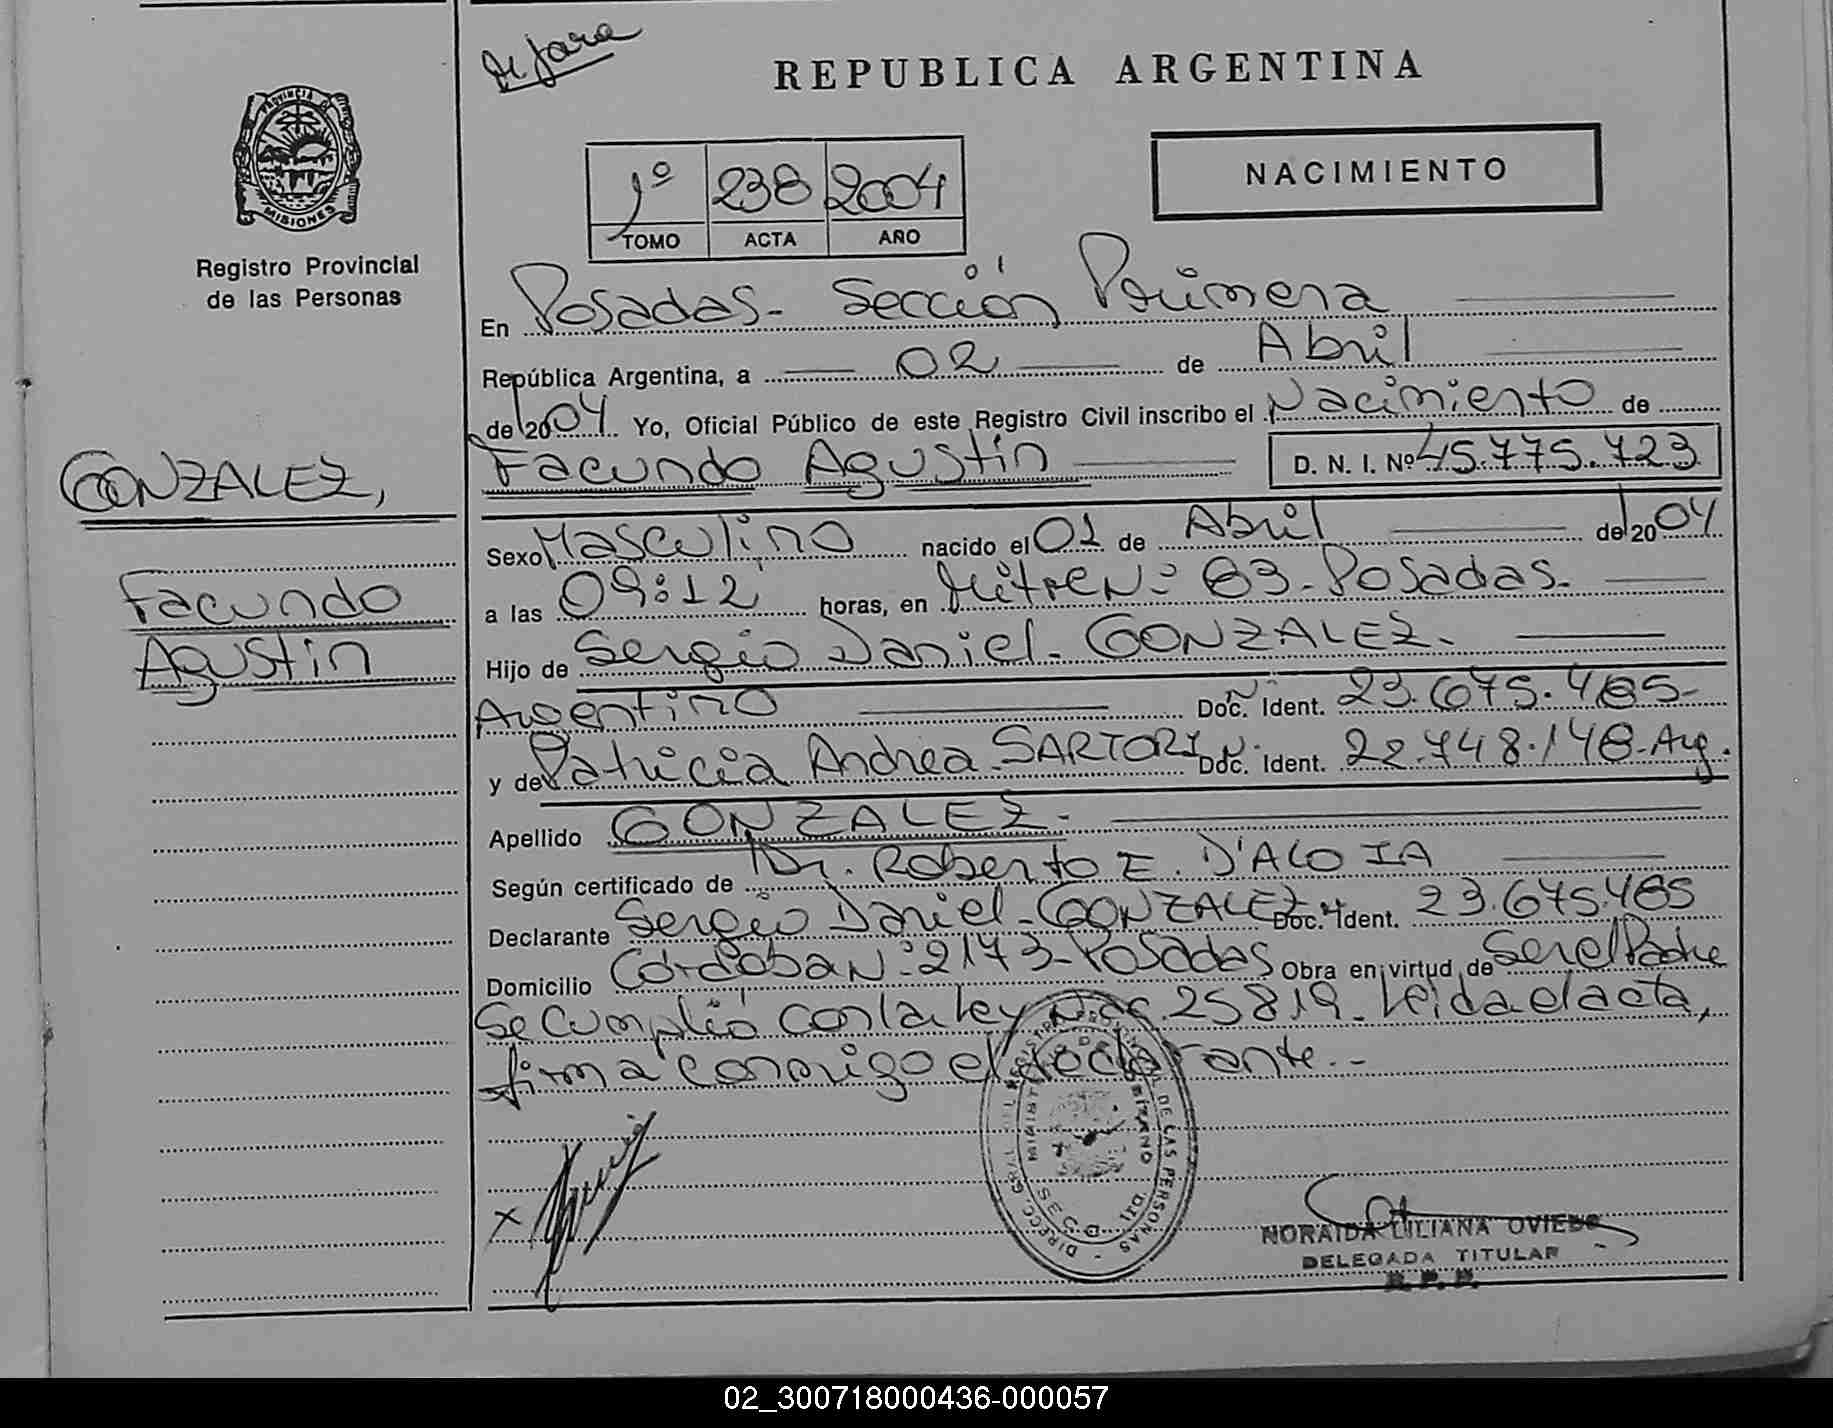 REPUBLICA ARGENTINA
PROVINCIA DE
MISIONES
Registro Provincial
de las Personas
1º 238 2004
TOMO ACTA AÑO
NACIMIENTO
En Posadas - Sección Primera
República Argentina, a 02 de Abril
de 2004 Yo, Oficial Público de este Registro Civil inscribo el Nacimiento de
GONZALEZ,
Facundo Agustín D. N. I. Nº 45.775.723
Sexo Masculino nacido el 01 de Abril de 2004
Facundo
a las 09:12 horas, en Mitre Nº 83 - Posadas.
Agustín
Hijo de Sergio Daniel - GONZALEZ.
Argentino Doc. Ident. 23.675.485-
y de Patricia Andrea SARTORI Doc. Ident. 22.748.148-Arg.
Apellido GONZALEZ.
Según certificado de Dr. Roberto E. D'ALOIA
Declarante Sergio Daniel - GONZALEZ Doc. Ident. 23.675.485
Domicilio Córdoba Nº 2173 - Posadas Obra en virtud de Ser el Padre
Se cumplió con la Ley Nac. 25819. Leida el acta,
firma conmigo el declarante.-
NORAIDA LILIANA OVIEDO
DELEGADA TITULAR
02_300718000436-000057